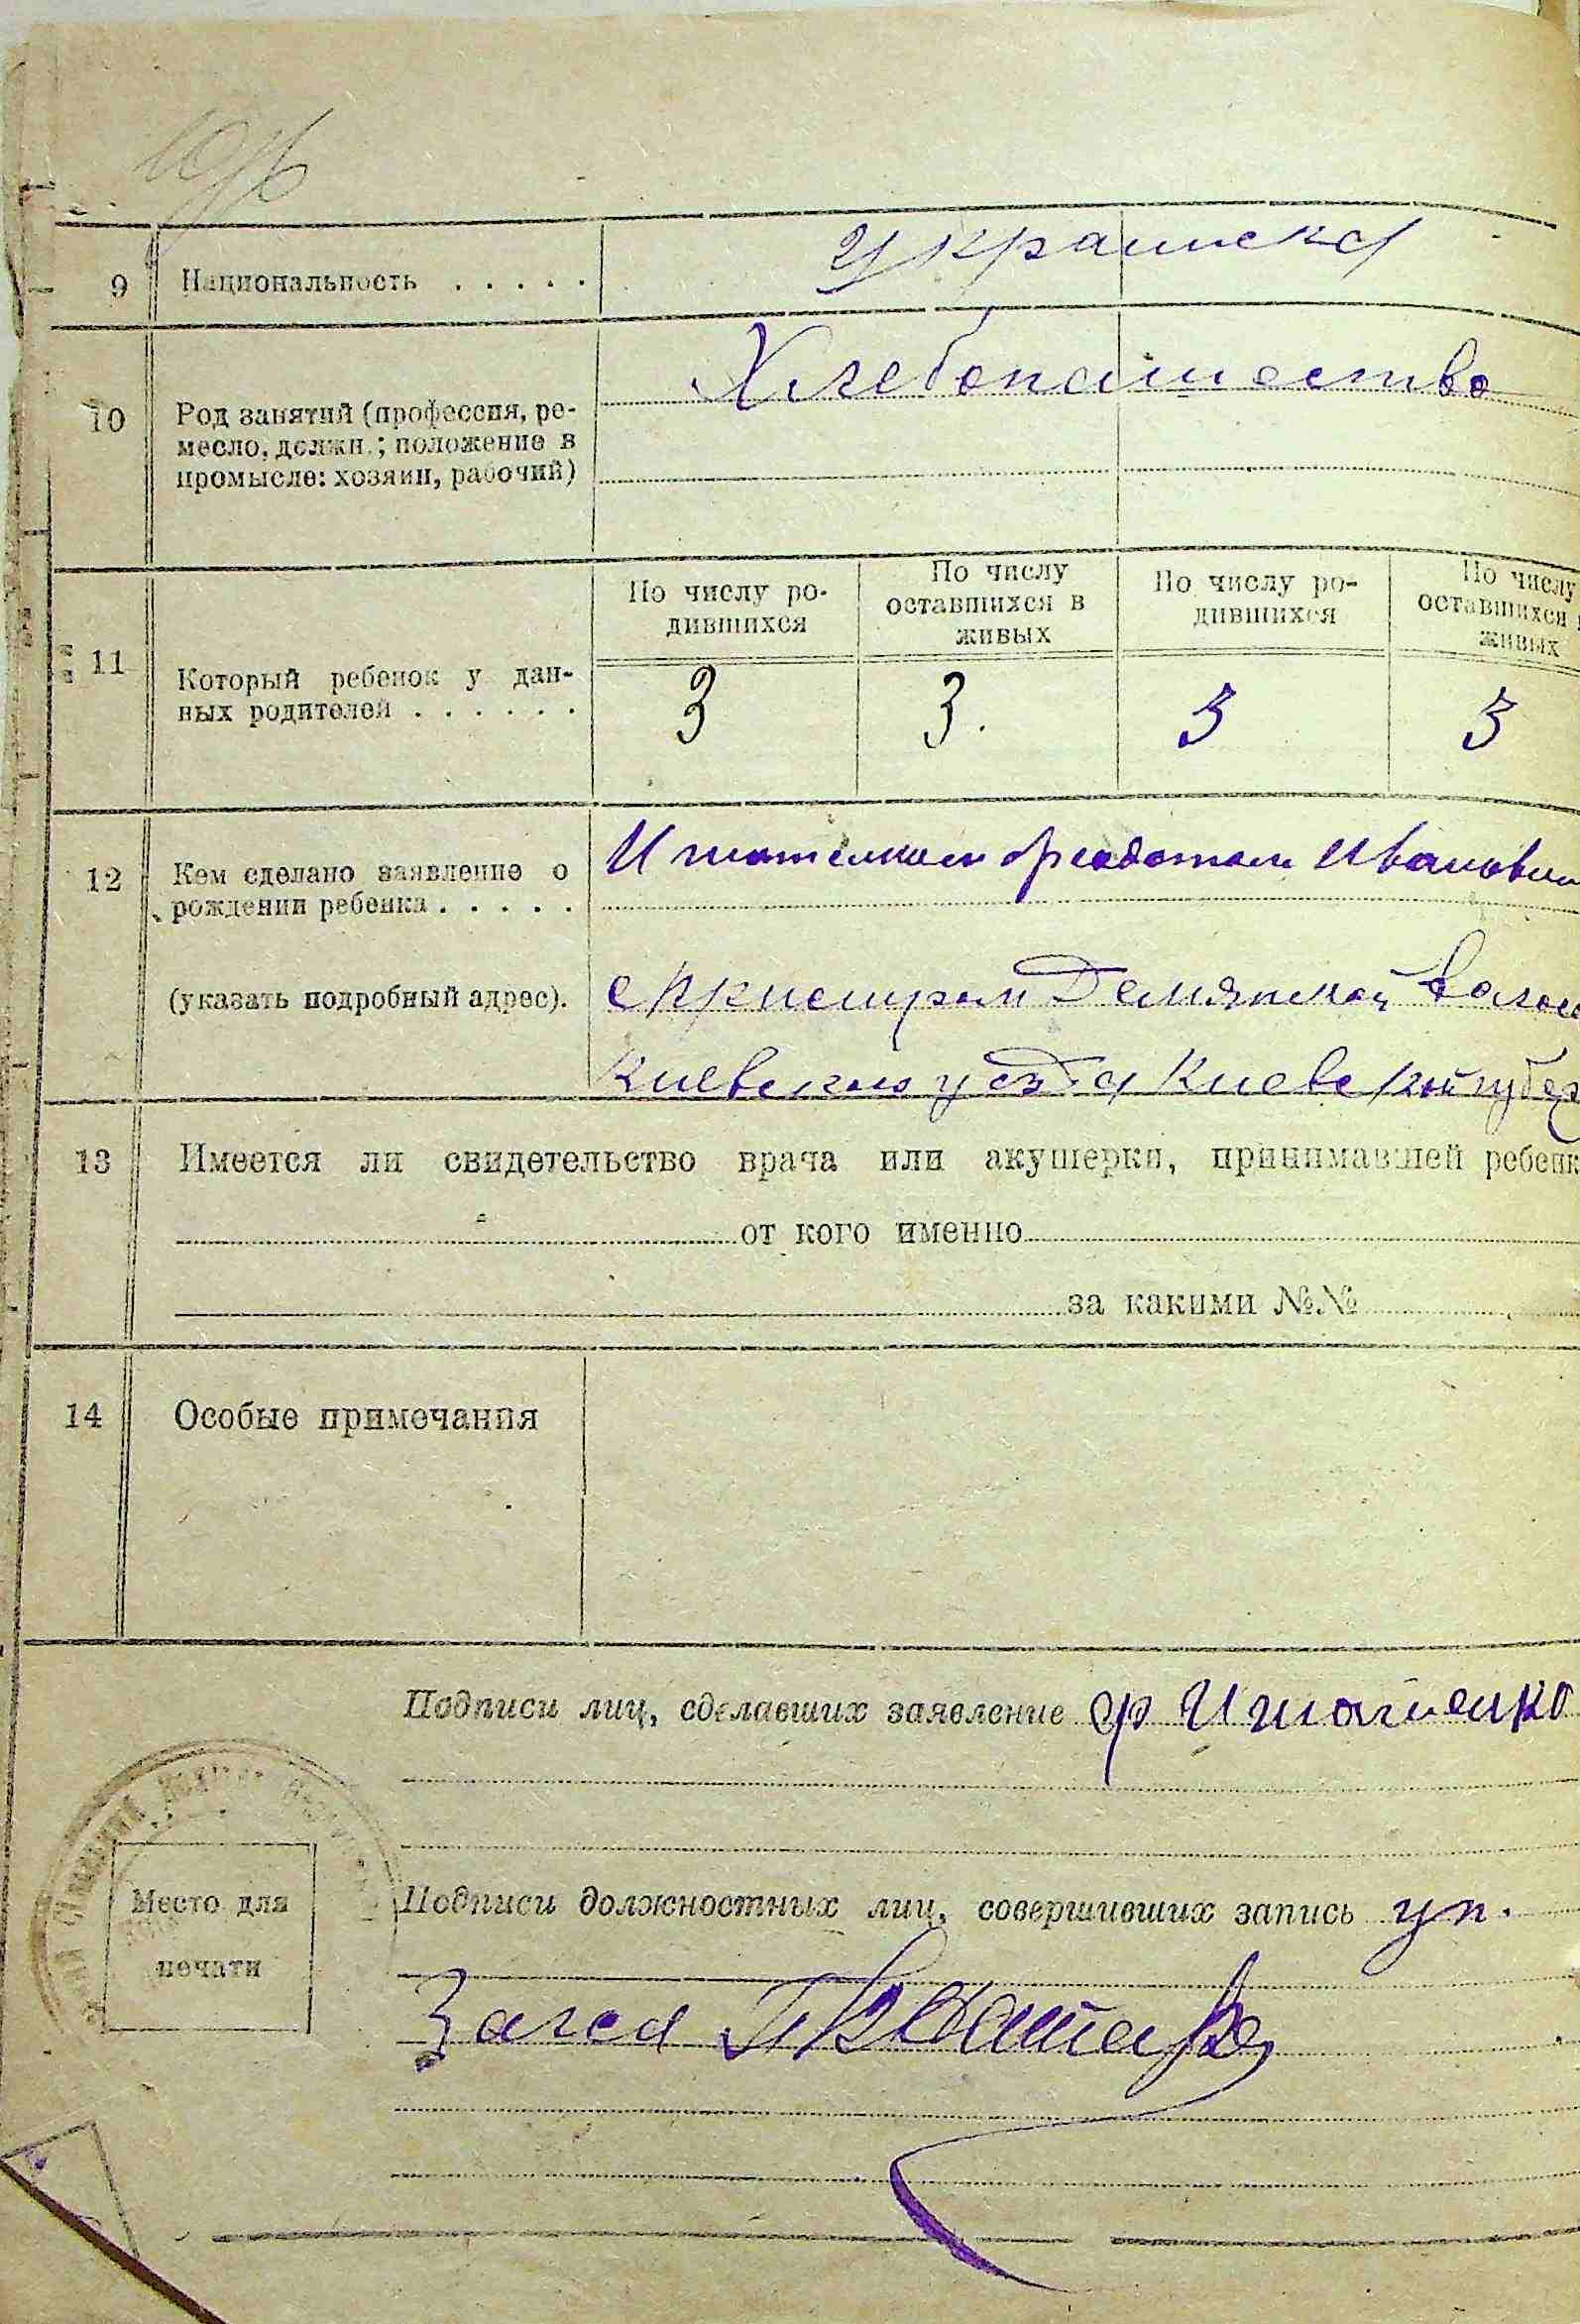 9 Национальность . . . . . украинска
10 Род занятий (профессия, ре-
месло, должн.; положение в
промысле: хозяин, рабочий)
Хлебопашество
По числу ро-
дившихся
По числу
оставшихся в
живых
По числу ро-
дившихся
По числу
оставшихся
живых
11 Который ребенок у дан-
ных родителей . . . . . .
3 3. 3 3
12 Кем сделано заявление о
рождении ребенка . . . . .
Игнатенком Феодотом Иванови
(указать подробный адрес).
Киевского уезда Киевской губер
13 Имеется ли свидетельство врача или акушерки, принимавшей ребенк
от кого именно
за какими №№
14 Особые примечания
Подписи лиц, сделавших заявление Ф Игнатенко
Место для
печати
Подписи должностных лиц, совершивших запись уп.
Загса